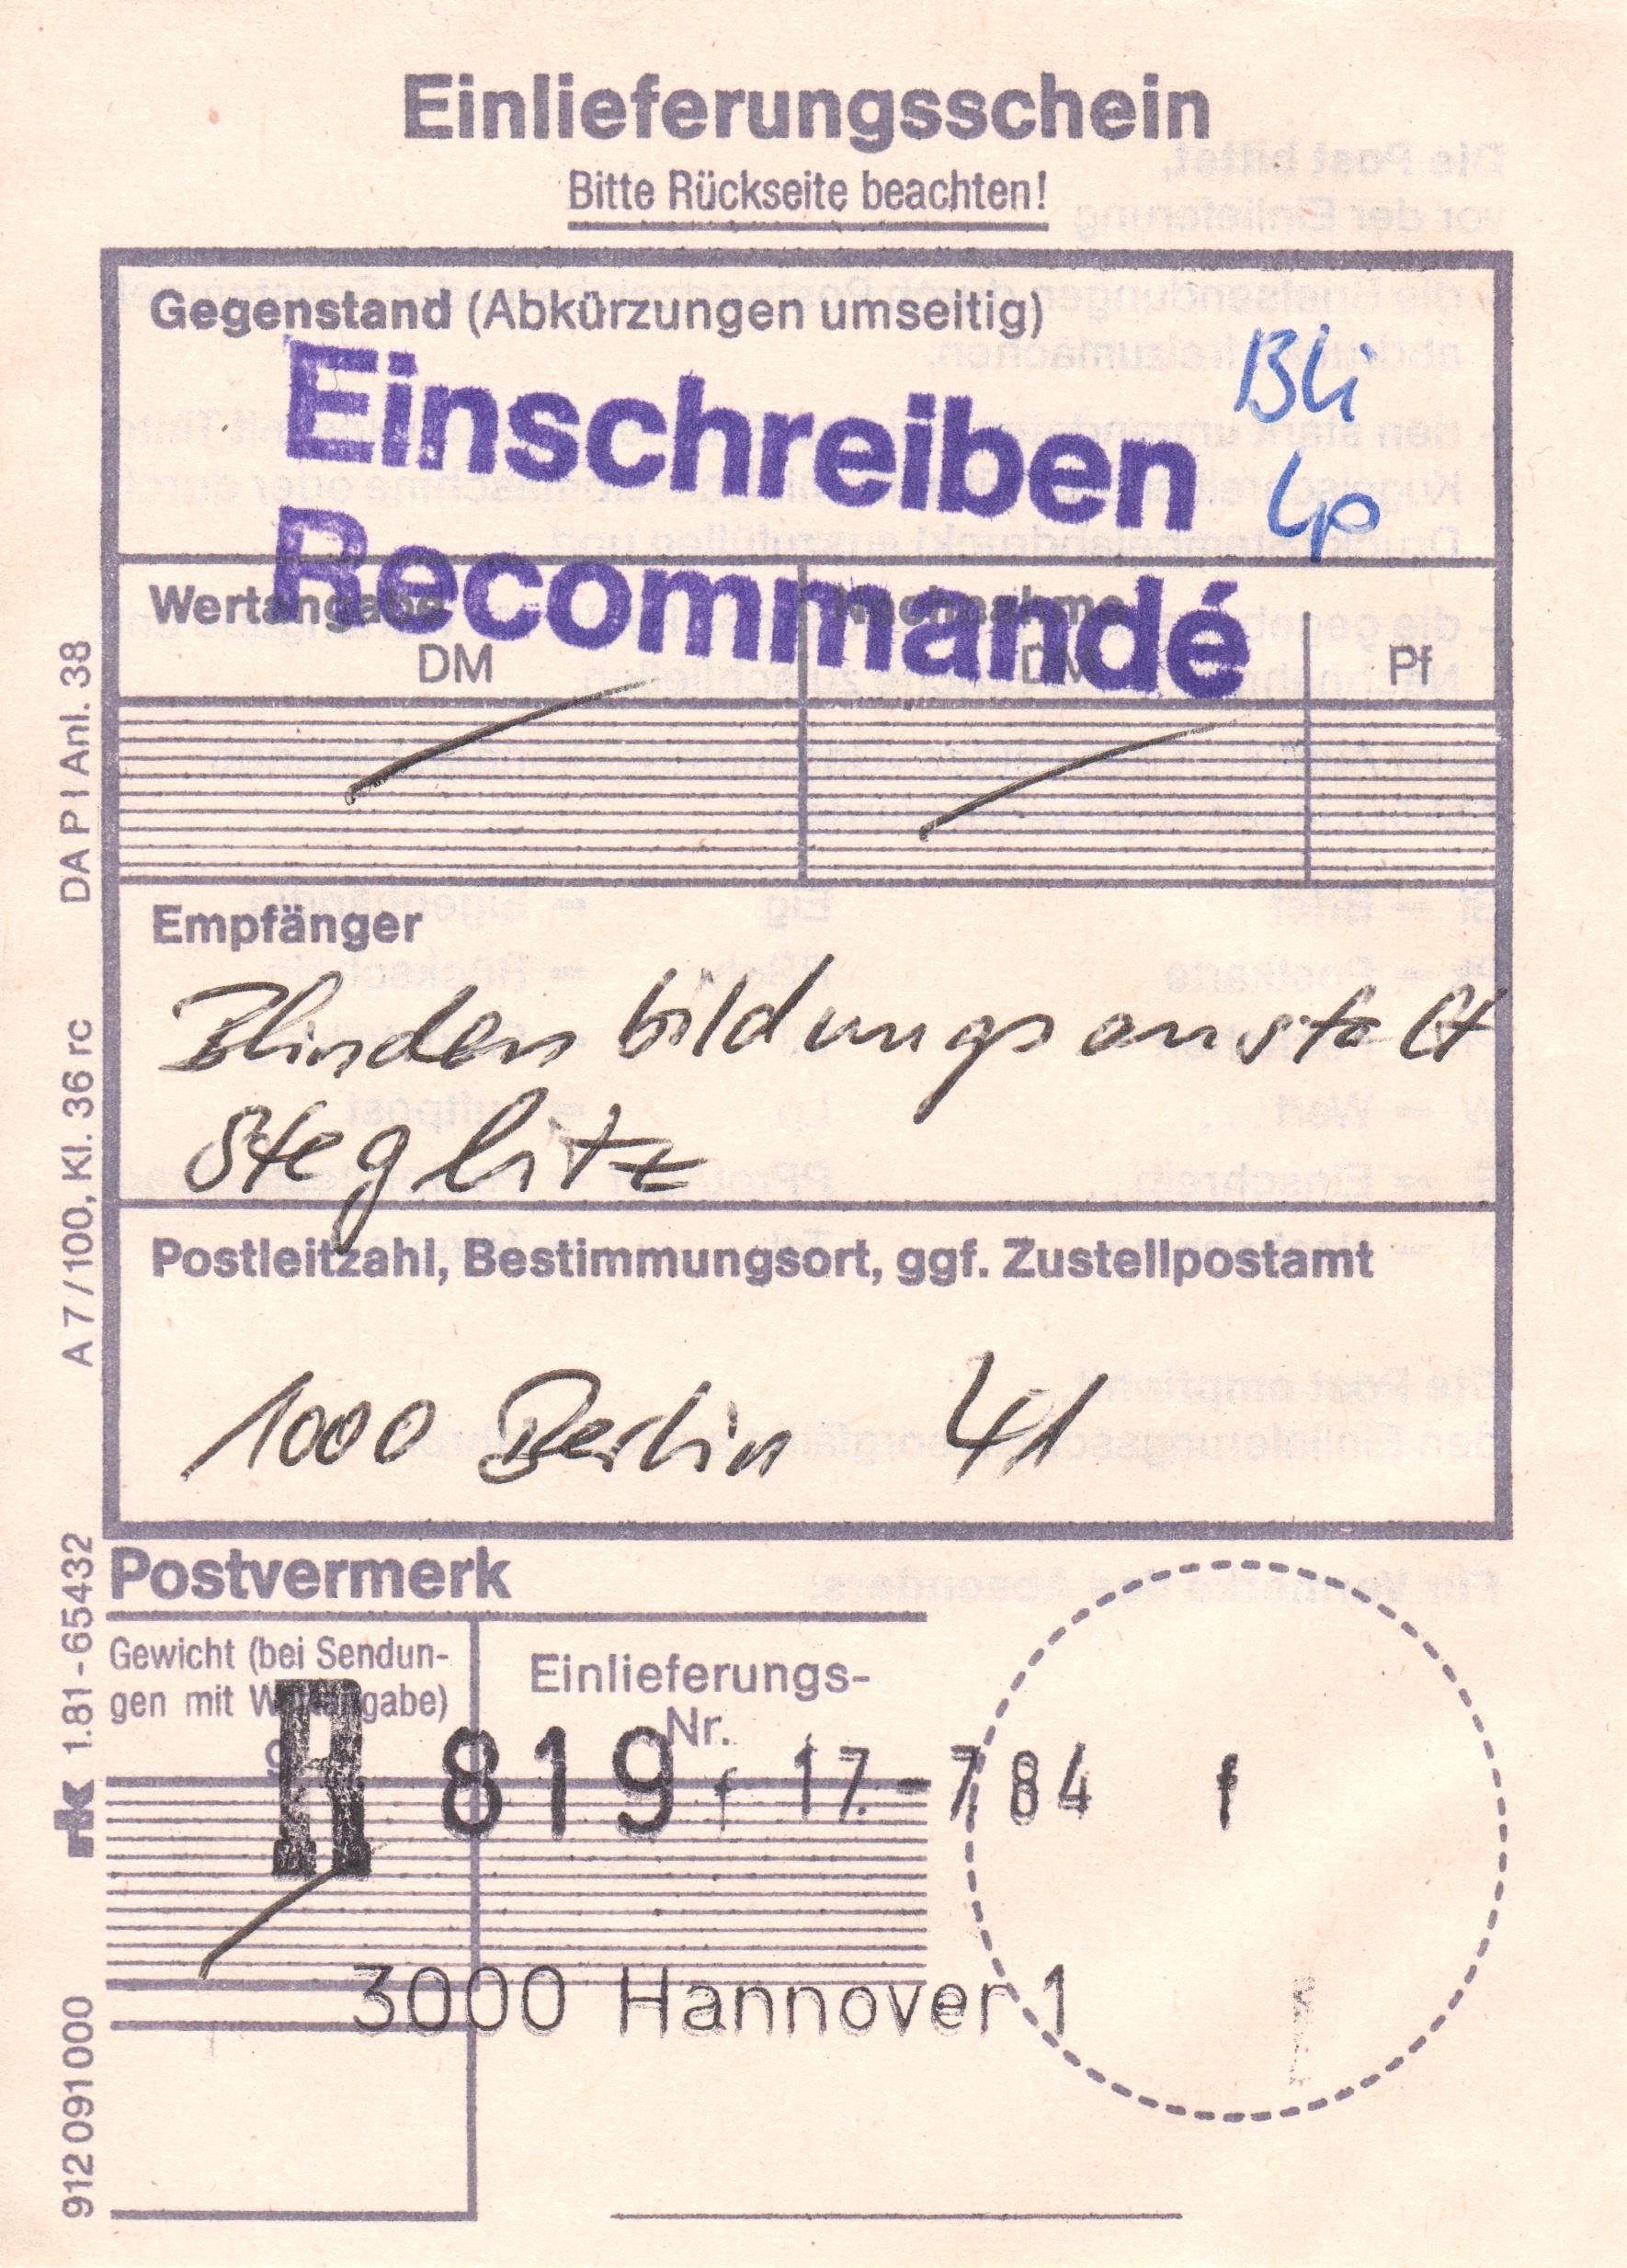 Einlieferungsschein
Bitte Rückseite beachten!
Gegenstand (Abkürzungen umseitig)
Bli
Einschreiben
Lp
Recommandé
Wertangabe
Nachnahme
DM
DM
Pf
Empfänger
Blindenbildungsanstalt
Steglitz
Postleitzahl, Bestimmungsort, ggf. Zustellpostamt
1000 Berlin 41
Postvermerk
Gewicht (bei Sendun-
gen mit Wertangabe)
g
Einlieferungs-
Nr.
R 819 f 17.-7.84 f
3000 Hannover 1
DA P I Anl. 38
A 7/100, Kl. 36 rc
rk 1.81-65432
912 091 000